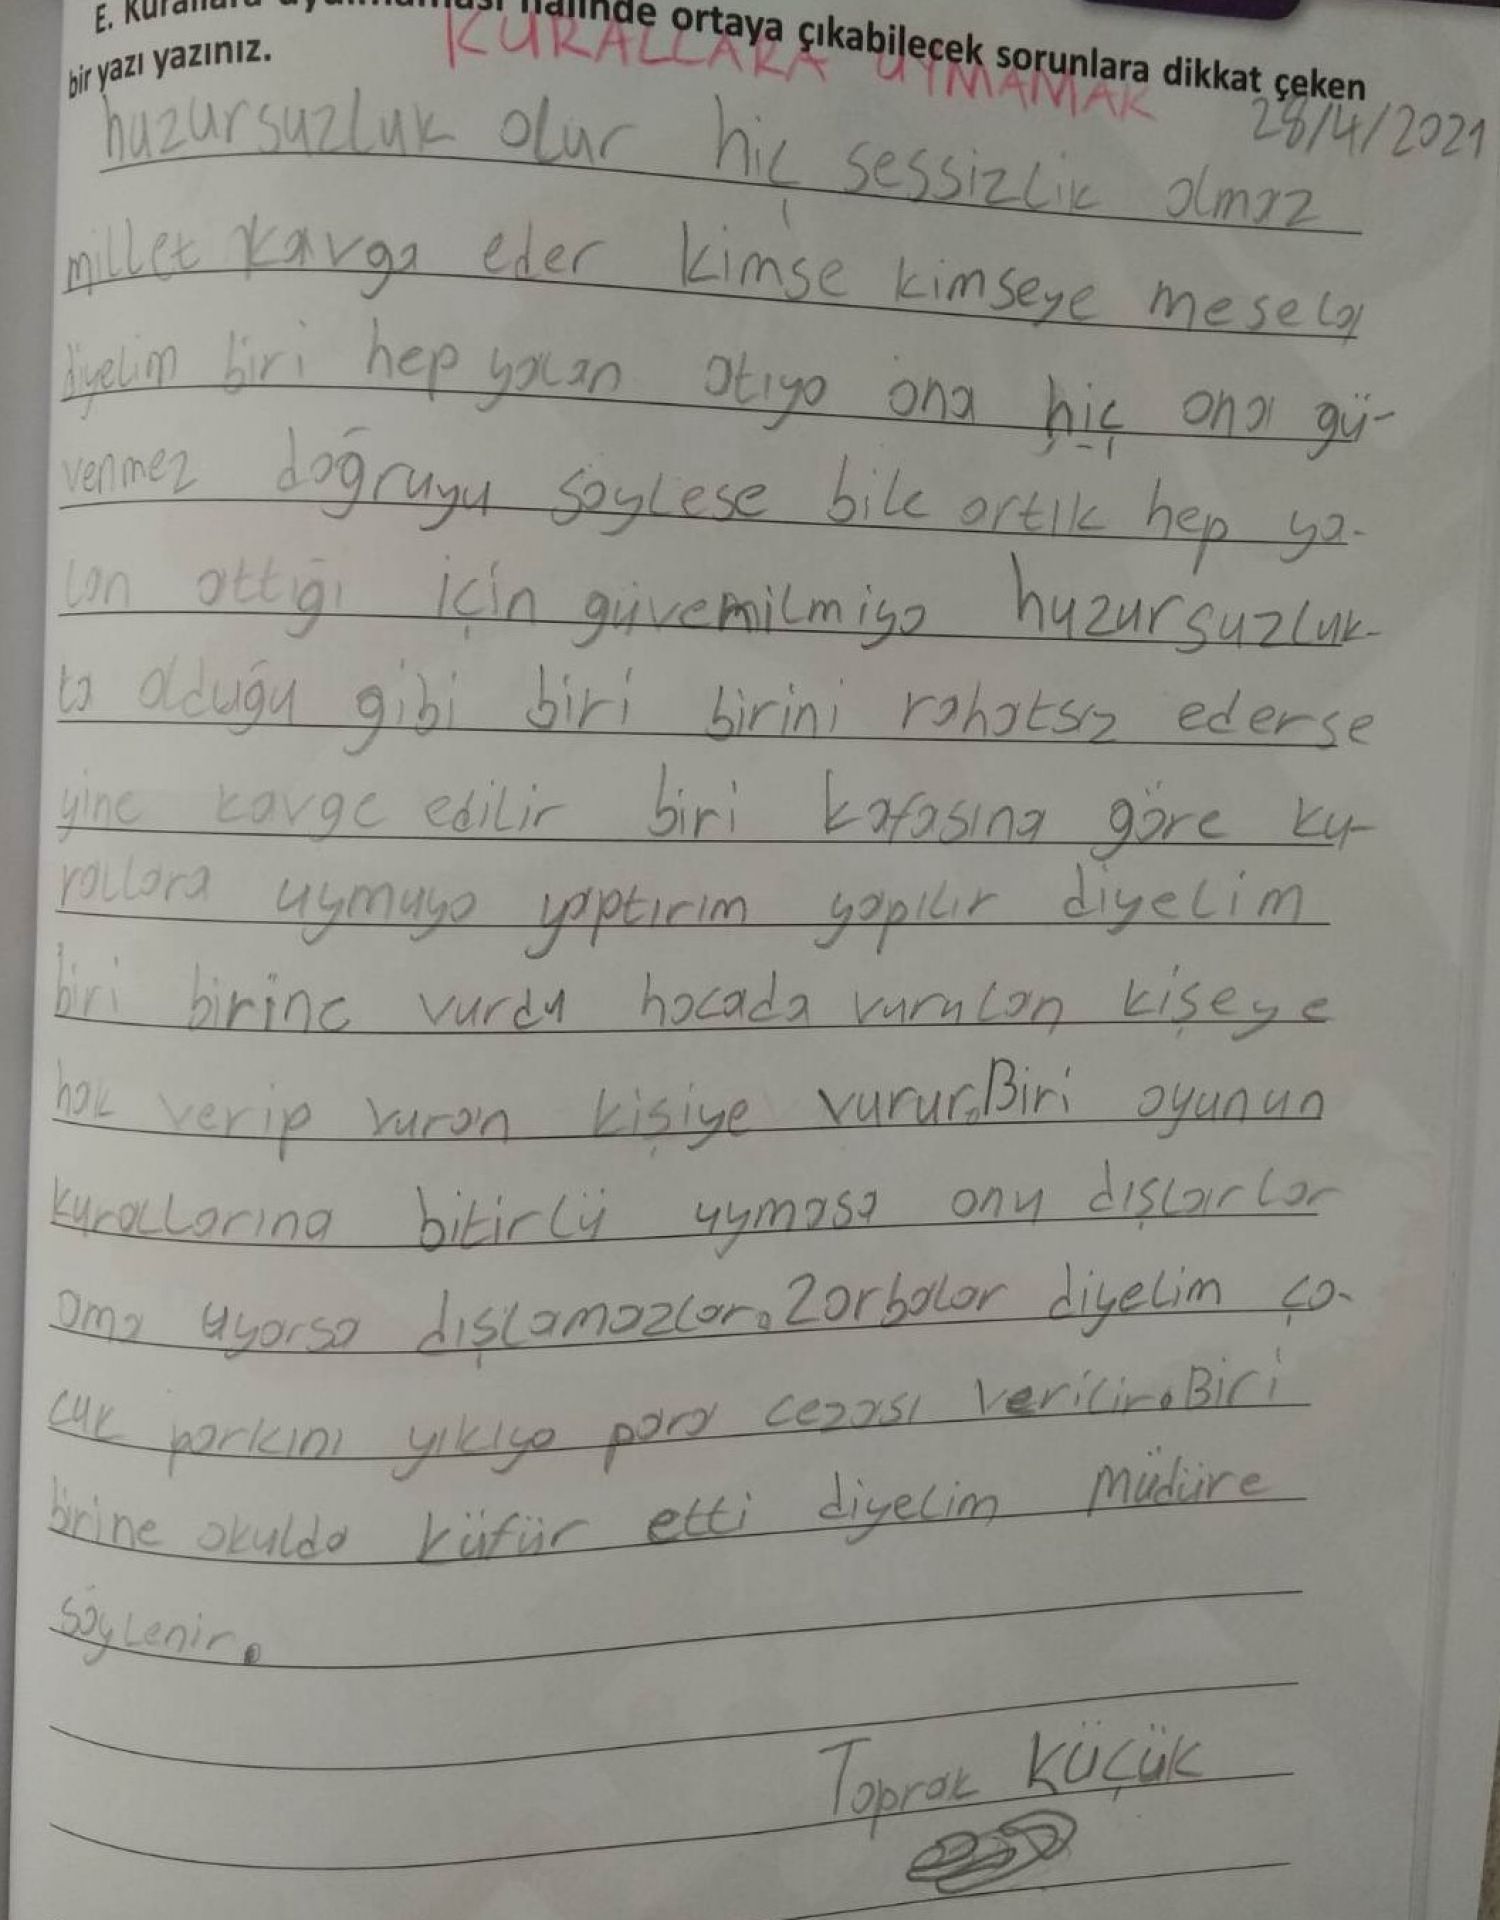 E. Kurallara uyulmaması halinde ortaya çıkabilecek sorunlara dikkat çeken
bir yazı yazınız.
KURALLARA UYMAMAK
28/4/2021
huzursuzluk olur hiç sessizlik olmaz
millet kavga eder kimse kimseye mesela
diyelim biri hep yalan atıyo ona hiç ona gü-
venmez doğruyu söylese bile artık hep ya-
lan attığı için güvemilmiyo huzursuzluk-
ta olduğu gibi biri birini rahatsız ederse
yine kavge edilir biri kafasına göre ku-
rallara uymuyo yaptırım yapılır diyelim
biri birine vurdu hocada vurulan kişeye
hak verip vuran kişiye vurur. Biri oyunun
kurallarına bitirlü uymasa onu dışlarlar
ama uyarsa dışlamazlar. Zorbalar diyelim ço-
cuk parkını yıkıyo para cezası verilir. Biri
birine okulda küfür etti diyelim müdüre
söylenir.
Toprak KÜÇÜK